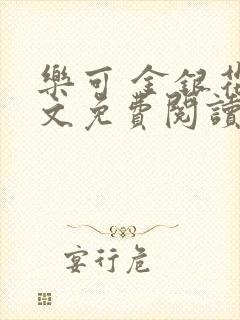 樂可 金銀花
文免費閱讀
宴行危